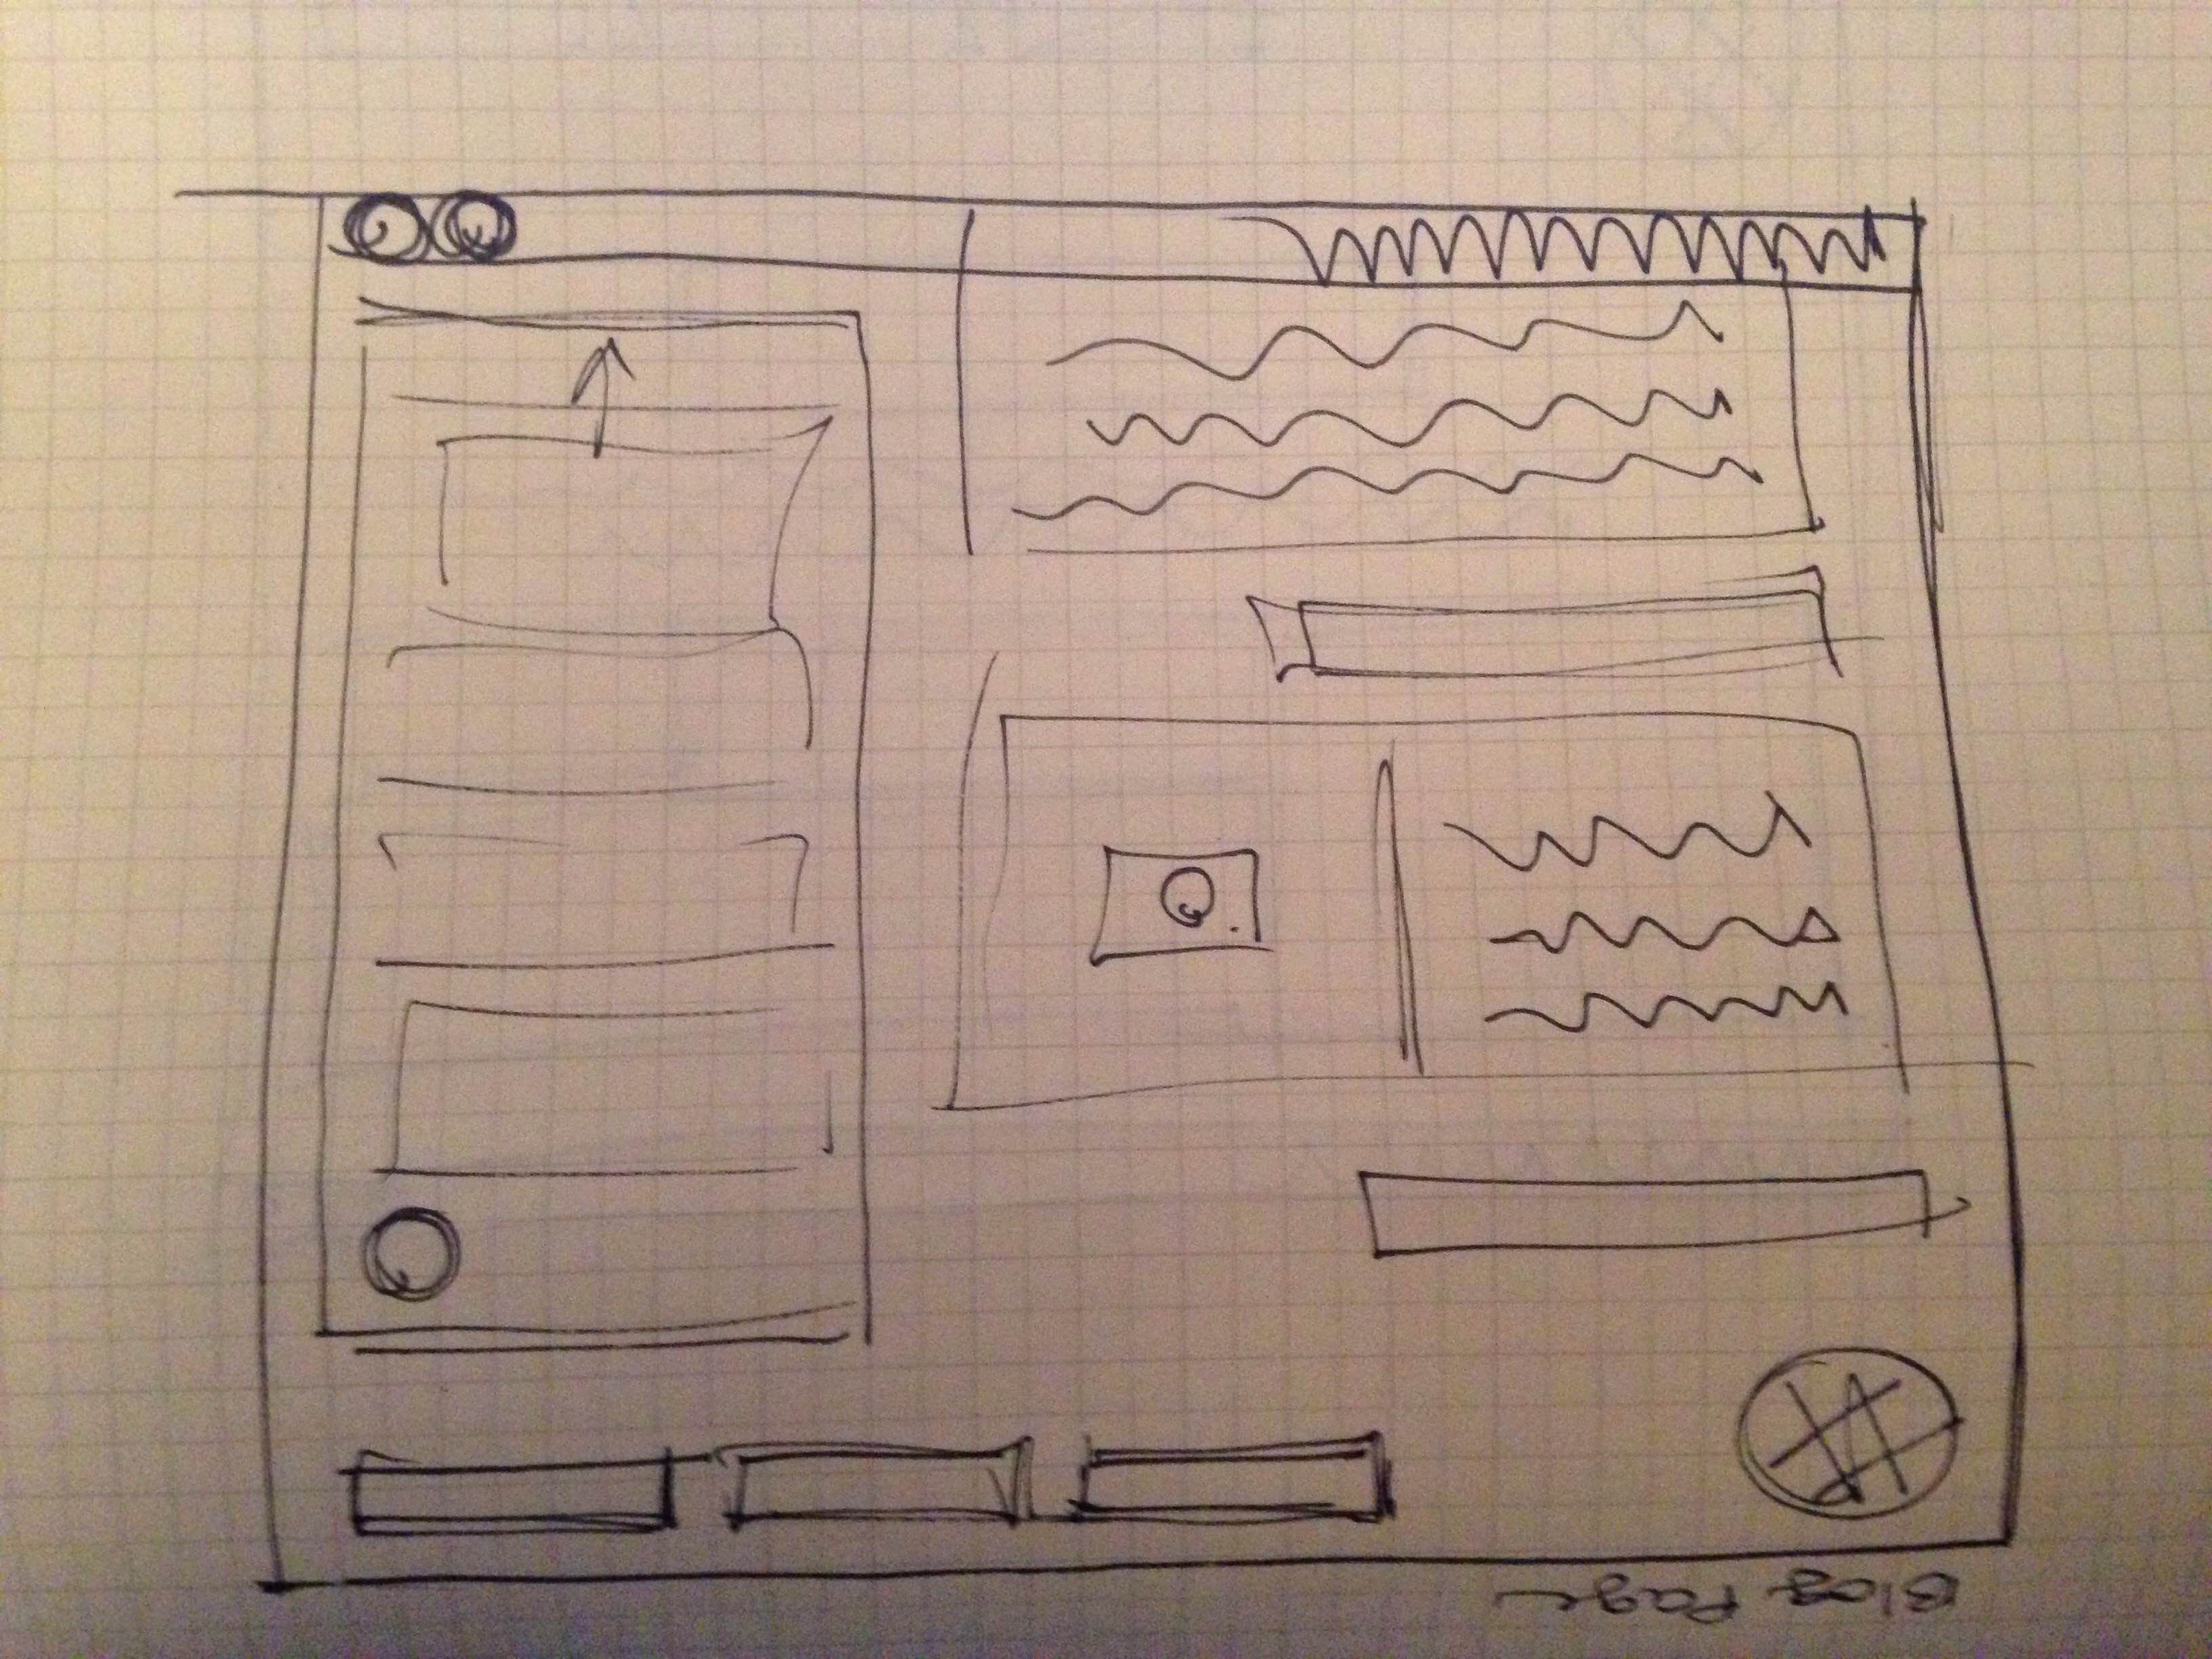 Blog Page